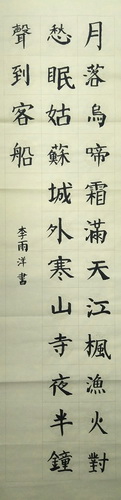 月落烏啼霜滿天江楓漁火對
愁眠姑蘇城外寒山寺夜半鐘
聲到客船
李雨洋書